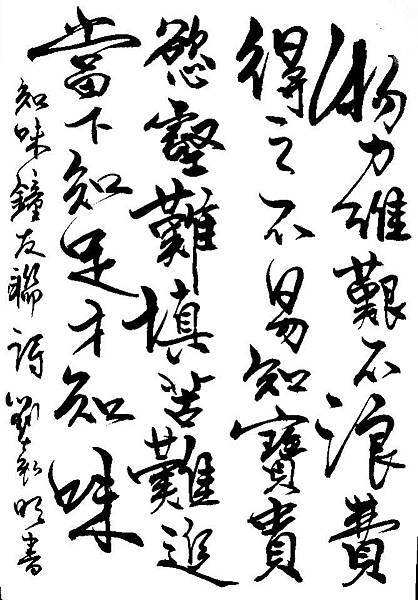 物力維艱不浪費
得之不易知寶貴
慾壑難填苦難追
當下知足才知味
知味 鐘友聯 詩 劉嘉明書